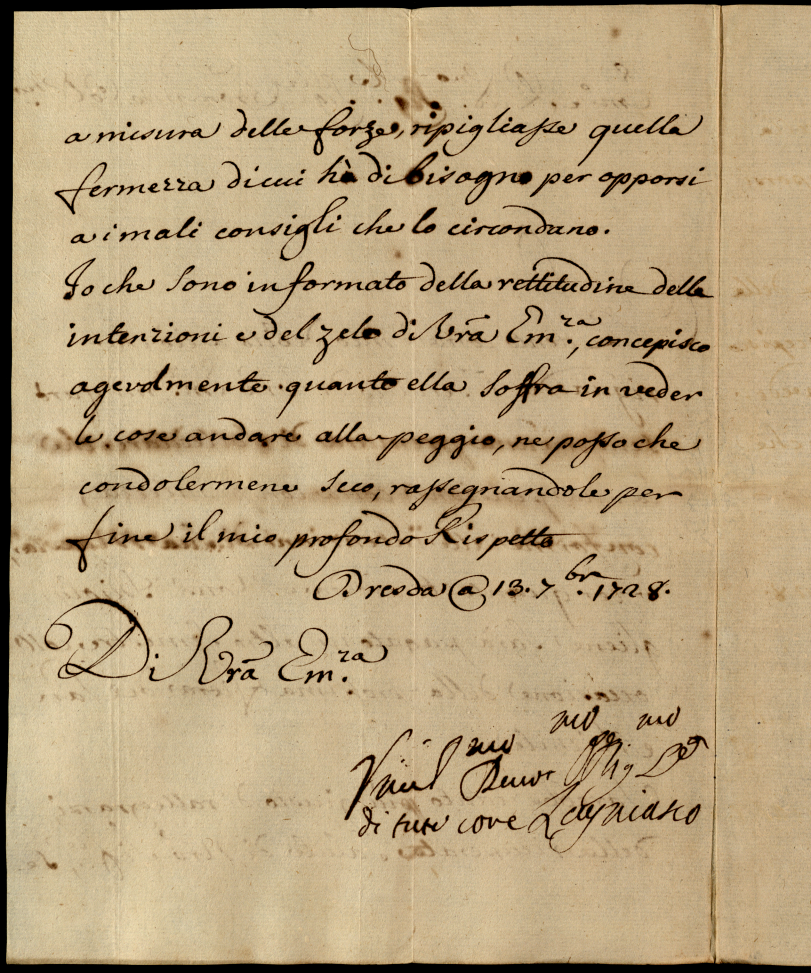 a misura delle forze, ripigliasse quella
fermezza di cui hà di bisogno per opporsi
a i mali consigli che lo circondano.
Io che sono informato della rettitudine delle
intenzioni e del zelo di Vrã Em.za, concepisco
agevolmente quanto ella soffra in veder
le cose andare alla peggio, ne posso che
condolermene seco, rassegnandole per
fine il mio profondo Rispetto
Dresda @ 13. 7.bre 1728.
Di Vrã Em.za
Umil.mo Devot.mo Obblig.mo
di tuto core Lagnasco